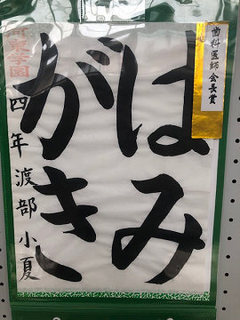 歯科医師会長賞
はみ
がき
四年 渡部 小夏